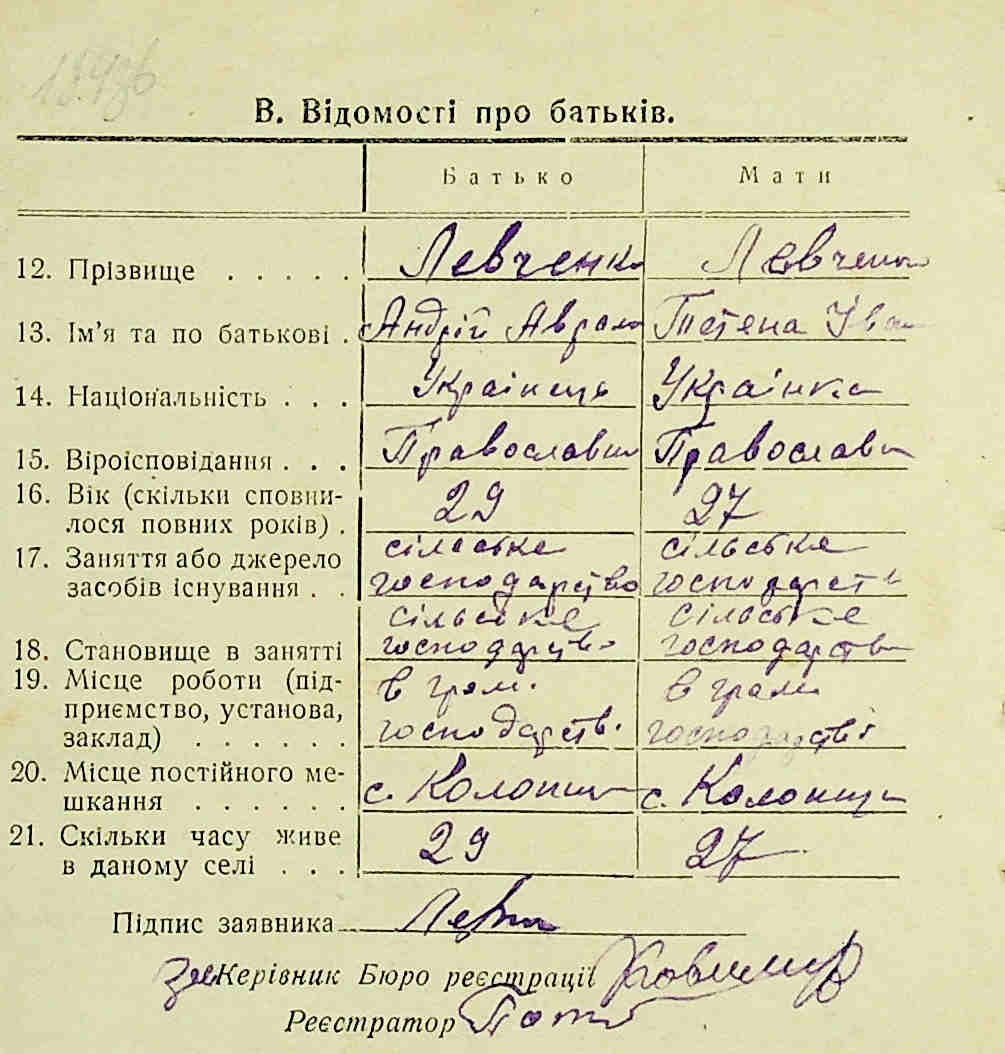 В. Відомості про батьків.
Батько Мати
12. Прізвище . . . . . Левченко Левченко
13. Ім'я та по батькові . Андрій Аврам Тетяна Іван
14. Національність . . . Українець Українка
15. Віроісповідання . . . Православн Православн
16. Вік (скільки сповни-
лося повних років) . 29 27
17. Заняття або джерело сільське сільське
засобів існування . . господарство господарств
сільське сільське
18. Становище в занятті господарство господарств
19. Місце роботи (під- в гром. в гром.
приємство, установа,
заклад) . . . . . . господарств. господарстві
20. Місце постійного ме-
шкання . . . . . . с. с.
21. Скільки часу живе
в даному селі . . . 29 27
Підпис заявника
За Керівник Бюро реєстрації
Реєстратор